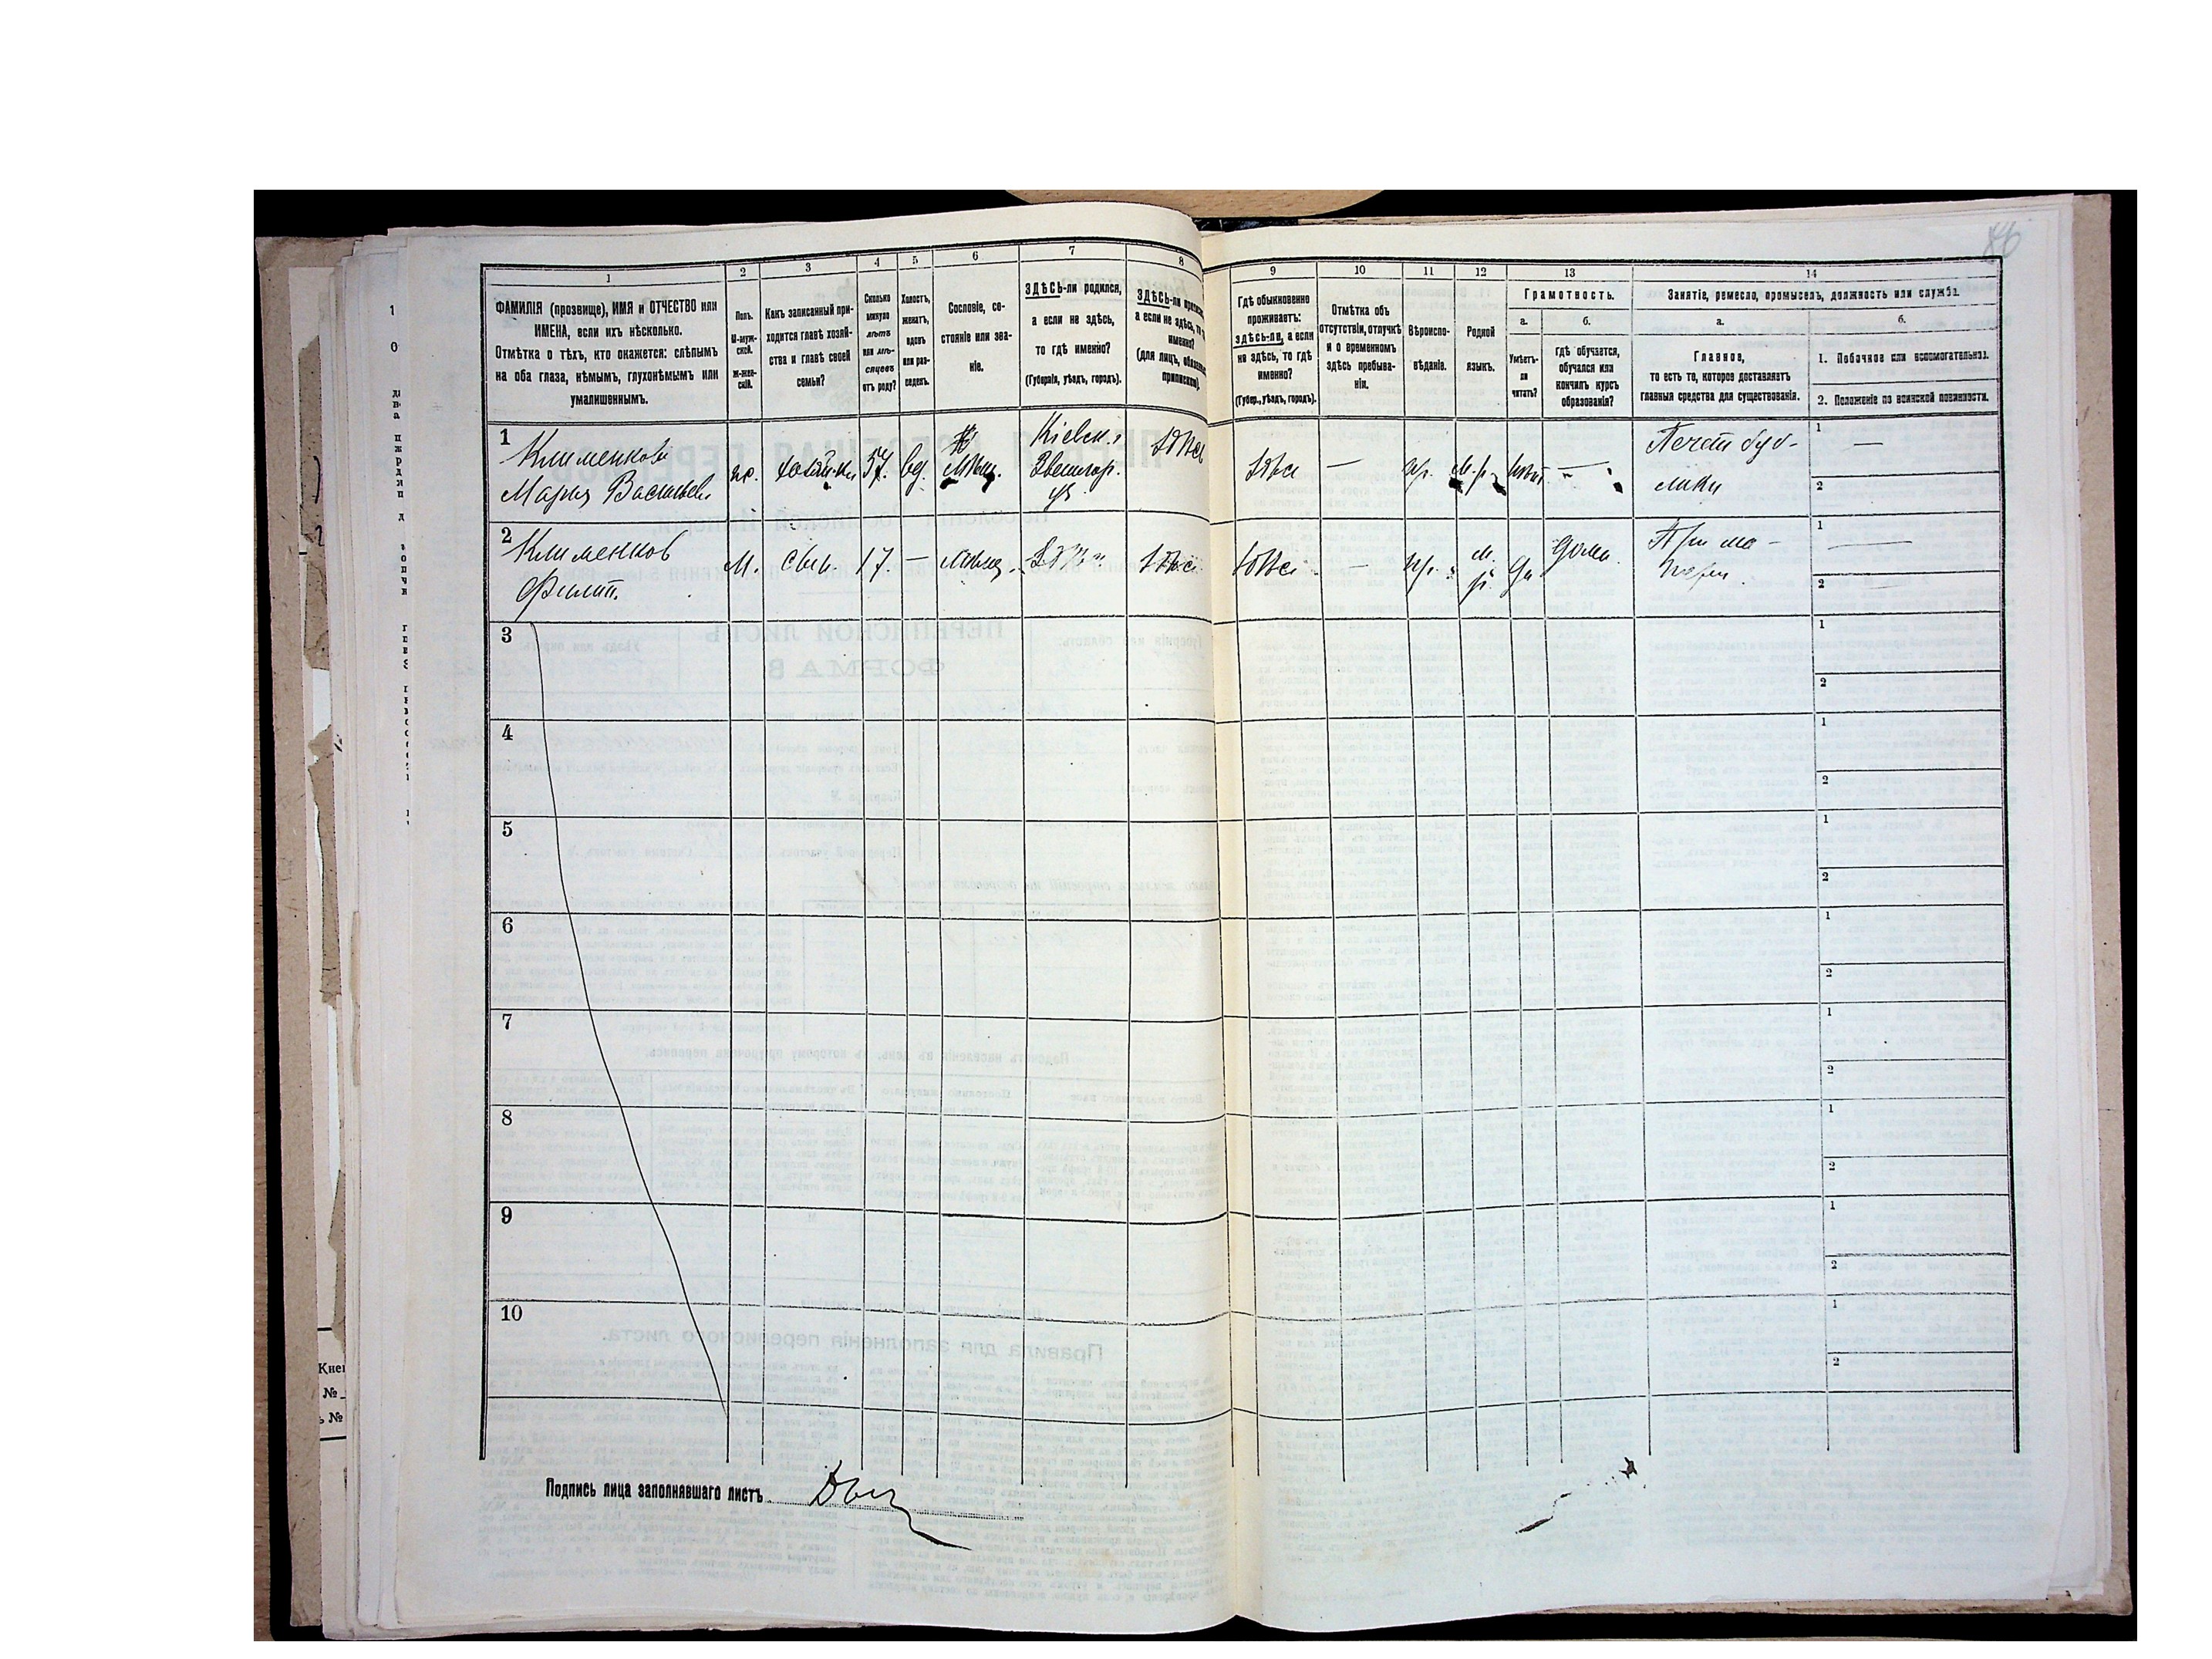 86
1
2
3
4
5
6
7
8
9
10
11
12
13
14
ФАМИЛІЯ (прозвище), ИМЯ и ОТЧЕСТВО или
ИМЕНА, если ихъ нѣсколько.
Отмѣтка о тѣхъ, кто окажется: слѣпымъ
на оба глаза, нѣмымъ, глухонѣмымъ или
умалишеннымъ.
Полъ.
М-муж-
ской.
Ж-жен-
скій.
Какъ записанный при-
ходится главѣ хозяй-
ства и главѣ своей
семьи?
Сколько
минуло
лѣтъ
или мѣ-
сяцевъ
отъ роду?
Холостъ,
женатъ,
вдовъ
или раз-
веденъ.
Сословіе, со-
стояніе или зва-
ніе.
ЗДѢСЬ-ли родился,
а если не здѣсь,
то гдѣ именно?
(Губернія, уѣздъ, городъ).
ЗДѢСЬ-ли
а если не здѣсь, то
именно?
(для лицъ,
Гдѣ обыкновенно
проживаетъ:
здѣсь-ли, а если
не здѣсь, то гдѣ
именно?
(Губер., уѣздъ, городъ).
Отмѣтка объ
отсутствіи, отлучкѣ
и о временномъ
здѣсь пребыва-
ніи.
Вѣроиспо-
вѣданіе.
Родной
языкъ.
Грамотность.
а.
Умѣетъ-
ли
читать?
б.
гдѣ обучается,
обучался или
кончилъ курсъ
образованія?
Занятіе, ремесло, промыселъ, должность или служба.
а.
Главное,
то есть то, которое доставляетъ
главныя средства для существованія.
б.
1. Побочное или вспомогательное.
2. Положеніе по воинской повинности.
1
Клименкова
Марія Васильев.
ж.
хозяйка
57.
вд.
Мѣщ.
Кіевск.
Звенигор.
уѣ.
здѣсь
здѣсь
—
пр.
м.р.
нѣт
—
Печет буб-
лики
1
—
2
2
Клименков
Филип.
М.
сын.
17.
—
мѣщ.
здѣсь
здѣсь
—
пр.
м.
р.
да
дома.
При ма-
тери.
1
—
2
—
3
1
2
4
1
2
5
1
2
6
1
2
7
1
2
8
1
2
9
1
2
10
1
2
Подпись лица заполнявшаго листъ